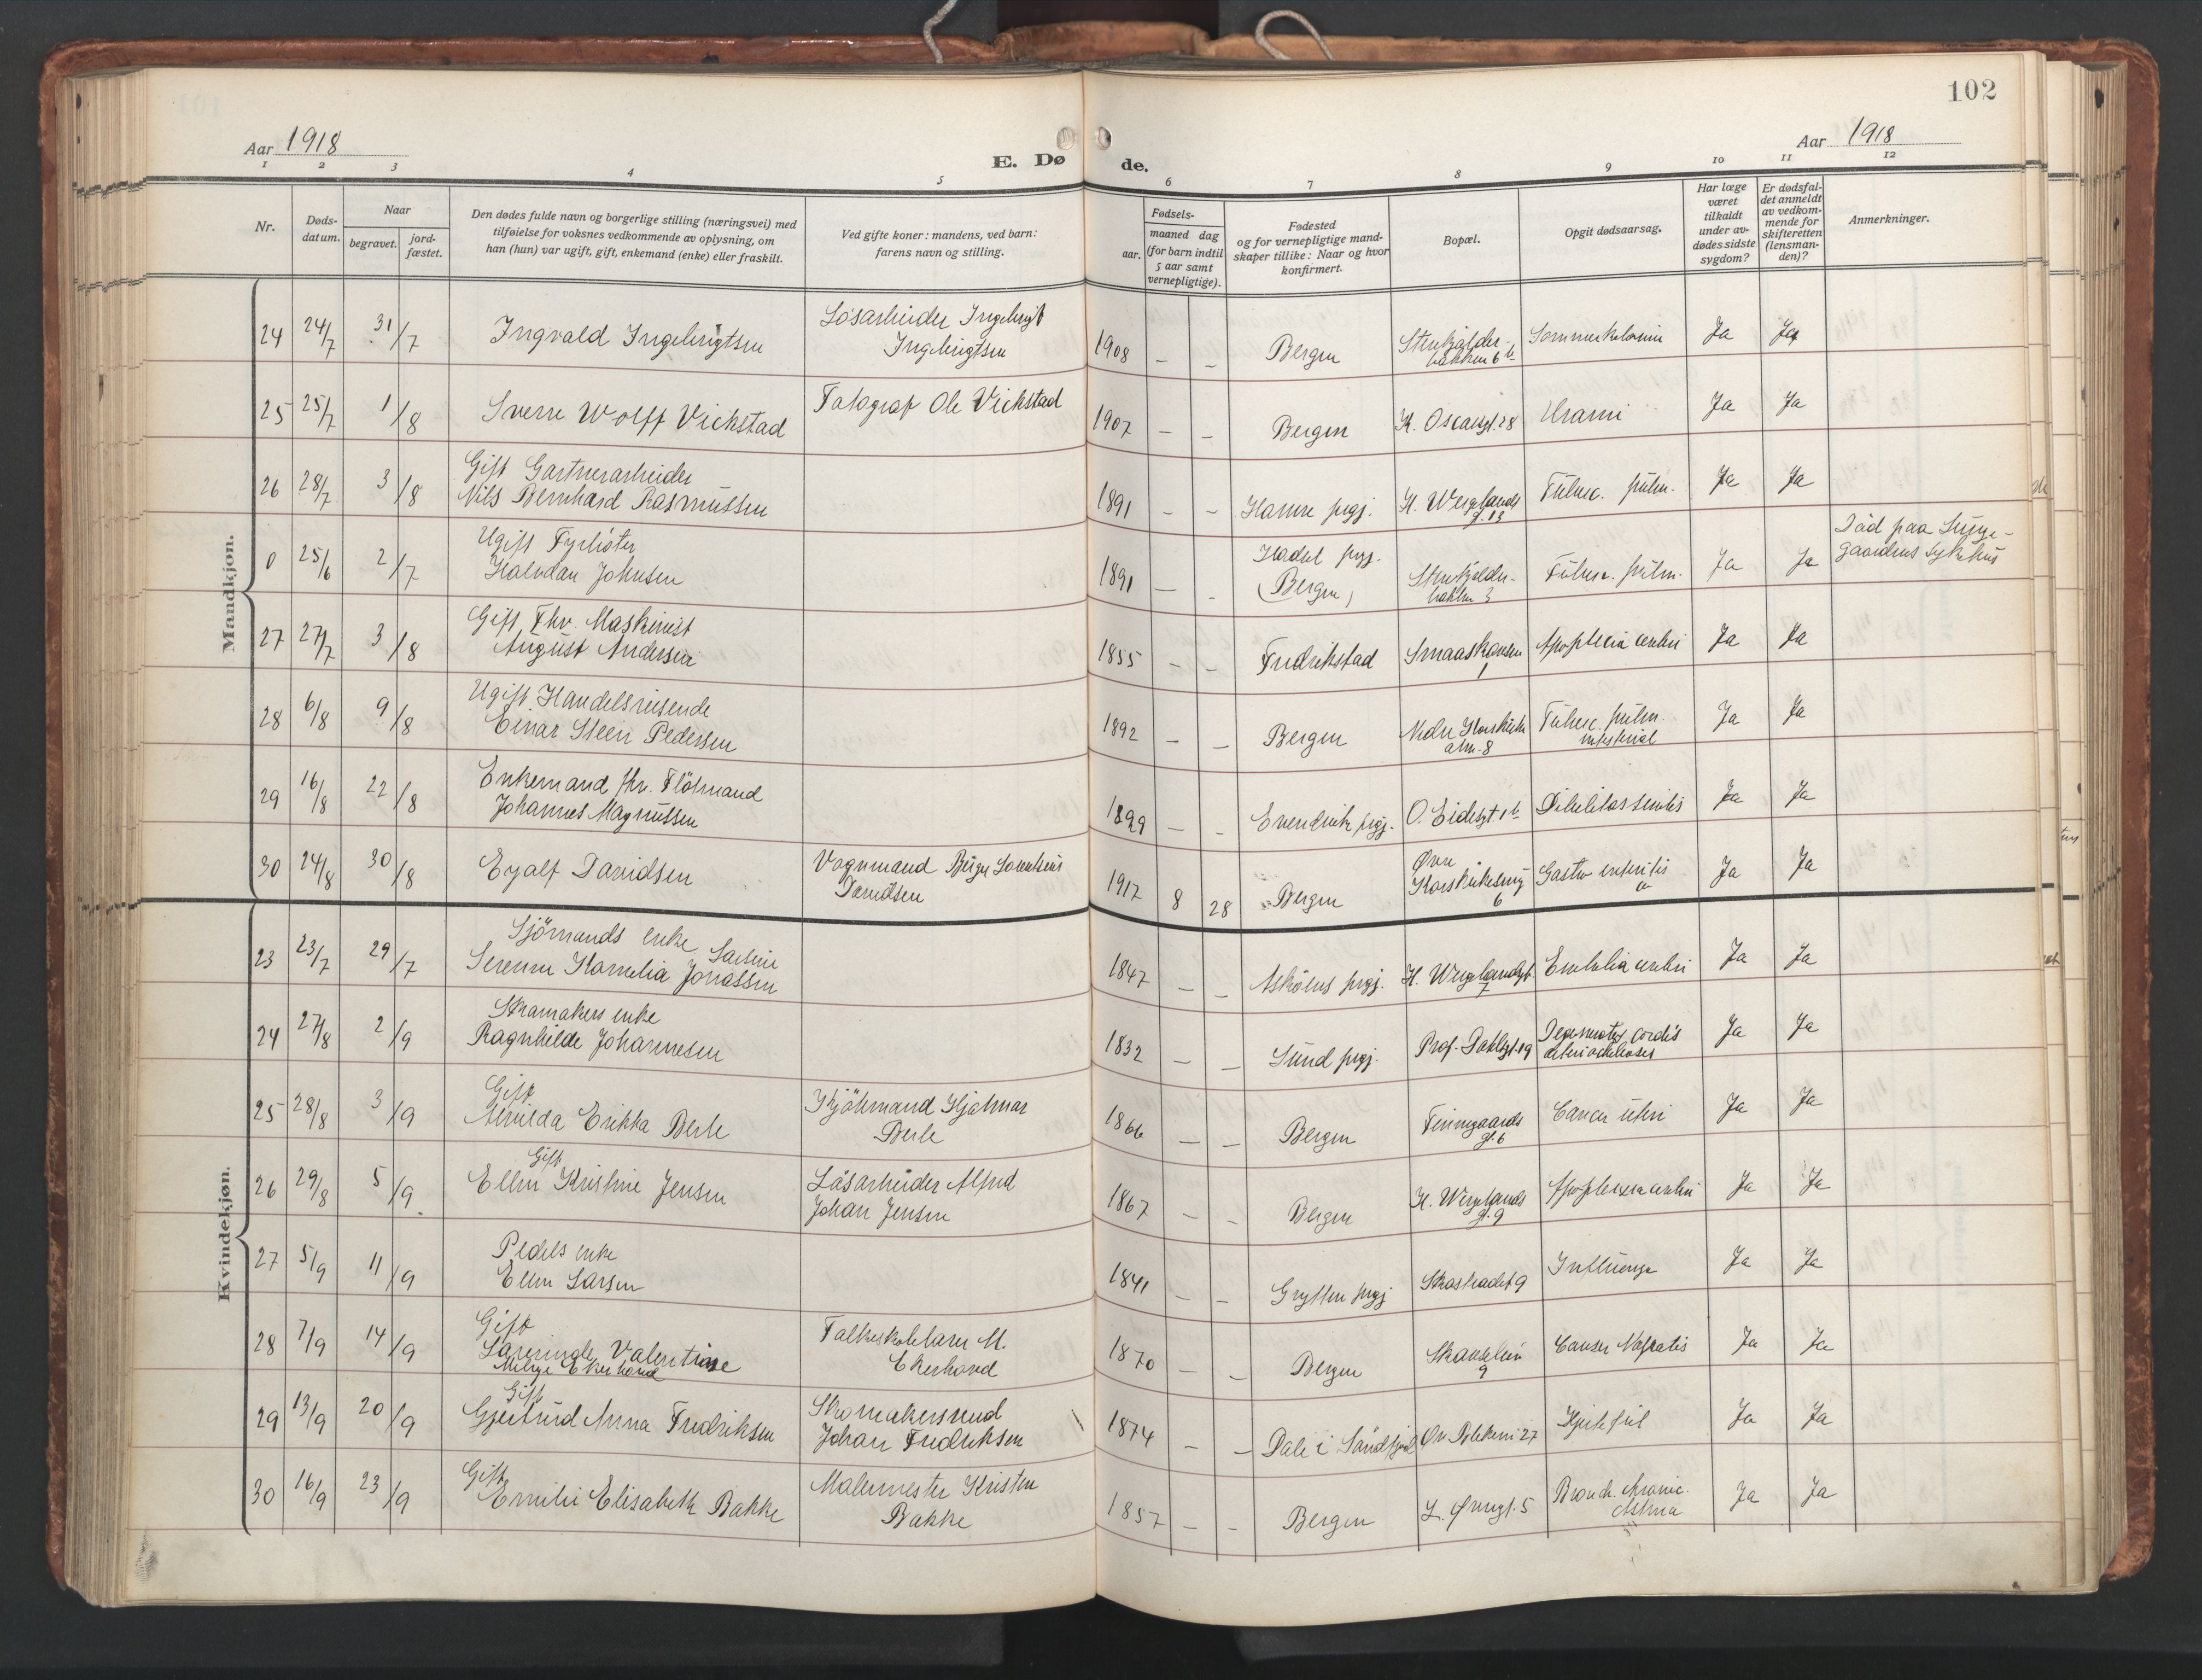 102
Aar 1918
Aar 1918
E. Dø de.
1 2 3 4 5 6 7 8 9 10 11 12
Nr.
Døds-
datum.
Naar
begravet.
jord-
fæstet.
Den dødes fulde navn og borgerlige stilling (næringsvei) med
tilføielse for voksnes vedkommende av oplysning, om
han (hun) var ugift, gift, enkemand (enke) eller fraskilt.
Ved gifte koner: mandens, ved barn:
farens navn og stilling.
Fødsels-
aar.
maaned dag
(for barn indtil
5 aar samt
vernepligtige).
Fødested
og for vernepligtige mand-
skaper tillike: Naar og hvor
konfirmert.
Bopæl.
Opgit dødsaarsag.
Har læge
været
tilkaldt
under av-
dødes sidste
sygdom?
Er dødsfal-
det anmeldt
av vedkom-
mende for
skifteretten
(lensman-
den)?
Anmerkninger.
Mandkjøn.
24 24/7 31/7 Ingvald Ingebrigtsen
Løsarbeider Ingebrigt
Ingebrigtsen
1908 - - Bergen
Stenkjelder-
bakken 6 b
Ja Ja
25 25/7 1/8 Sverre Wolff Vickstad
Fotograf Ole Vickstad
1907 - - Bergen K. Oscarsgt. 28 Urami Ja Ja
26 28/7 3/8 Gift Gartnerarbeider
Nils Bernhard Rasmussen
1891 - - Hamre prgj.
H. Wergelands
gt. 13
Tuberc. pulm. Ja Ja
0 25/6 2/7 Ugift Fyrbøter
Halvdan Johnsen
1891 - - Hadsel prgj.
(Bergen)
Stenkjelder-
bakken 3
Tuberc. pulm. Ja Ja
Død paa
gaardens Sykehus
27 27/7 3/8 Gift Fhv. Maskinist
August Andersen
1855 - - Fredrikstad
1
Apoplexia cerebri Ja Ja
28 6/8 9/8 Ugift Handelsreisende
Einar Steen Pedersen
1892 - - Bergen
Nedre Korskirke
alm. 8
Tuberc. pulm.
intestinal
Ja Ja
29 16/8 22/8 Enkemand fhv. Flötmand
Johannes Magnussen
1899 - - Evendvik prgj. O. Eidesgt 1 b Debilitas senilis Ja Ja
30 24/8 30/8 Eyolf Davidsen
Vognmand Birger Lorentzius
Davidsen
1917 8 28 Bergen
Øvre
Korskirkesmug
6
Gastro enteritis
a
Ja Ja
Kvindekjøn.
23 23/7 29/7 Sjömands enke
Serenne Kornelia Sarline Jonassen
1847 - - Askøens prgj.
H. Wergelandsgt.
7
Embolia cerebri Ja Ja
24 27/8 2/9 Skomakers enke
Ragnhilde Johannesen
1832 - - Sund prgj. Prof. Dahlsgt. 19
Degeneratio cordis
Ja Ja
25 28/8 3/9 Gift
Alvilda Erikka Berle
Hjalmar
Berle
1866 - - Bergen
Finnegaards
gt. 6
Cancer uteri Ja Ja
26 29/8 5/9 Gift
Ellen Kristine Jensen
Løsarbeider Alfred
Johan Jensen
1867 - - Bergen
H. Wergelands
gt. 9
Apoplexia cerebri Ja Ja
27 5/9 11/9 Pedels enke
Ellen Larsen
1841 - - Grytten prgj Skostrædet 9 Influenza Ja Ja
28 7/9 14/9 Gift
Valentine
Milege Ekerhovd
Folkeskolelærer M.
Ekerhovd
1870 - - Bergen
9
Ja Ja
29 13/9 20/9 Gift
Gjertrud Anna Fredriksen
Skomakersvend
Johan Fredriksen
1874 - - Dale i Söndfjord Øv. Blekevei 27 Hjertefeil Ja Ja
30 16/9 23/9 Gift
Emilie Elisabeth Bakke
Malermester Kristen
Bakke
1857 - - Bergen L. Øvregt. 5
Bronch. kronic.
Astma
Ja Ja